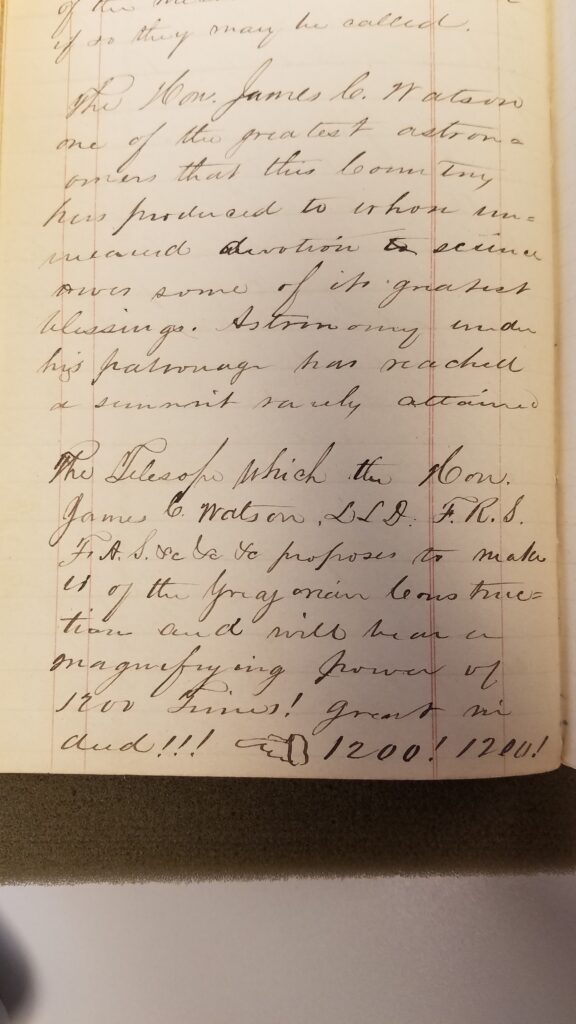 of the
if so they may be called.
The Hon. James C. Watson
one of the greatest astron=
omers that this Country
has produced to whose un=
wearied devotion to science
owes some of its greatest
blessings. Astronomy under
his patronage has reached
a summit rarely attained
The Telesope which the Hon.
James C. Watson, L L D. F. R. S.
F. A. S. &c &c &c proposes to make
is of the Gregorian Construc=
tion and will bear a
magnifying power of
1200 Times! great in
deed!!! ☜ 1200! 1200!